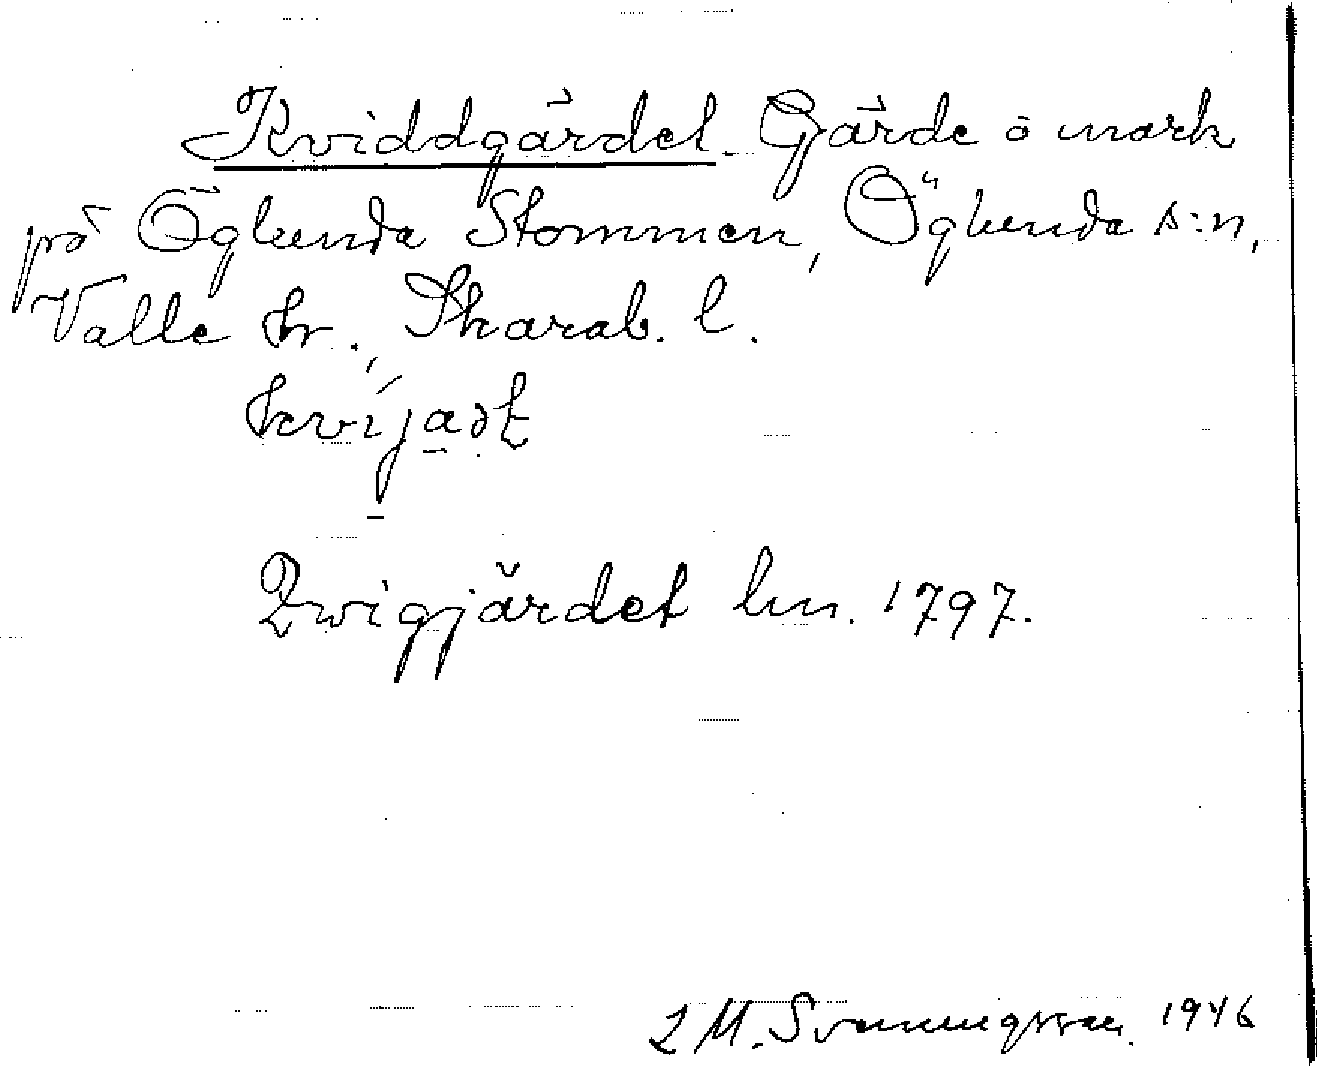 Kviddgärdet. Gärde o mark
på Öglunda Stommen, Öglunda s:n,
Valle hr., Skarab. l.
kvíjaat
Qwigjärdet lm. 1797.
L M. Svenungsson. 1946